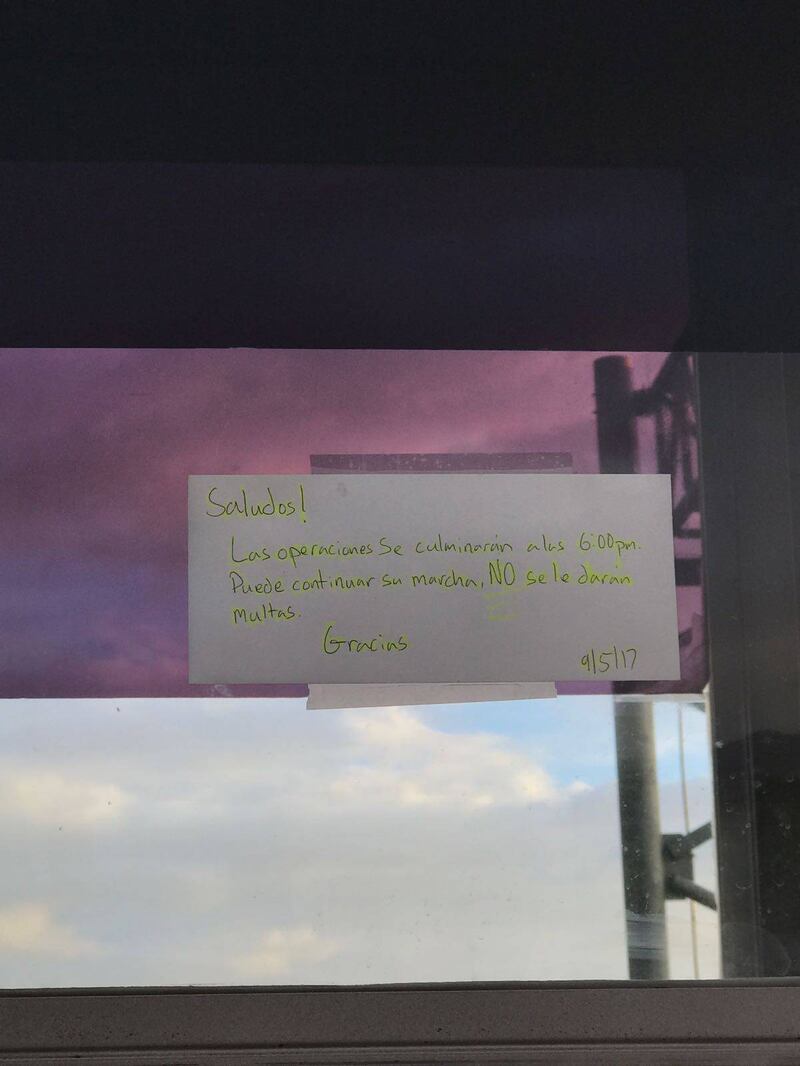 Saludos!
Las operaciones Se culminarán a las 6:00pm.
Puede continuar su marcha, NO se le darán
multas.
Gracias
9/5/17